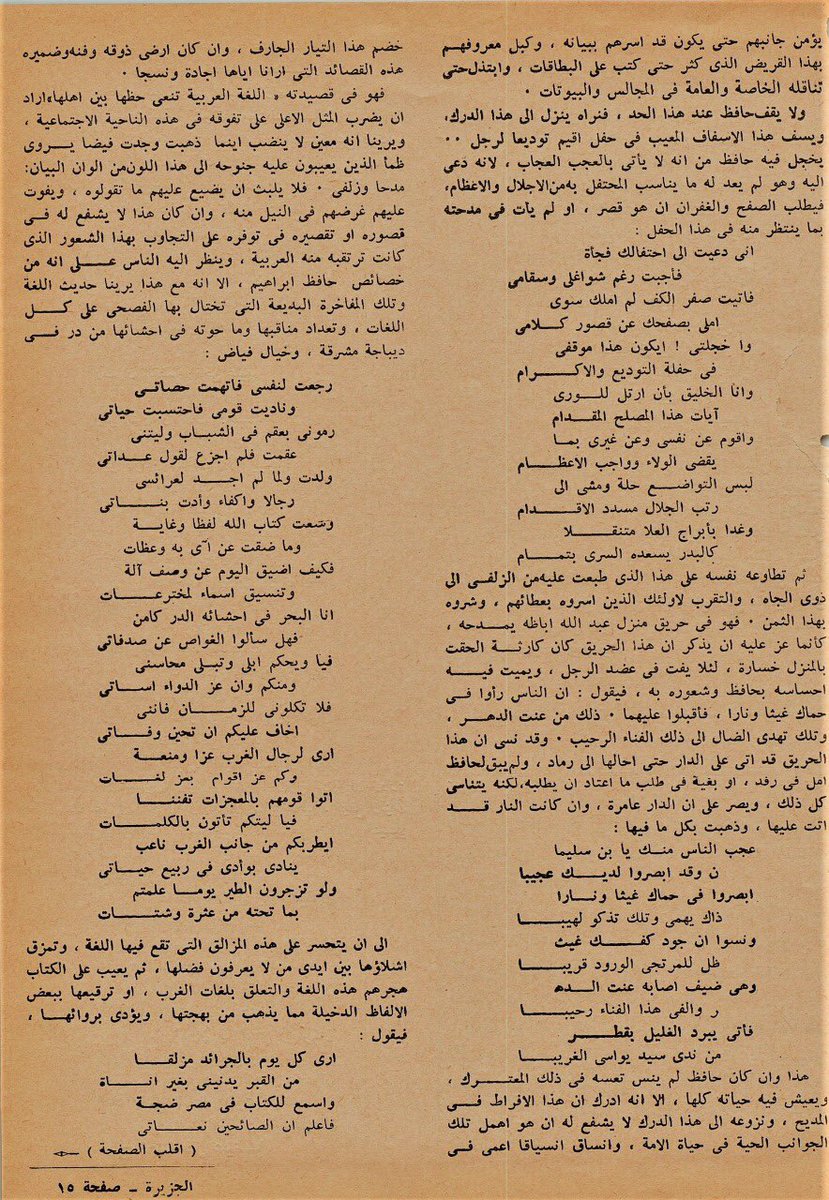 يؤمن جانبهم حتى يكون قد اسرهم ببيانه ، وكبل معروفهم
بهذا القريض الذى كثر حتى كتب على البطاقات ، وابتذل حتى
تناقله الخاصة والعامة فى المجالس والبيوتات ٠
ولا يقف حافظ عند هذا الحد ، فنراه ينزل الى هذا الدرك،
ويسف هذا الاسفاف المعيب فى حفل اقيم توديعا لرجل ٠٠
يخجل فيه حافظ من انه لا يأتى بالعجب العجاب ، لانه دعى
اليه وهو لم يعد له ما يناسب المحتفل به من الاجلال والاعظام،
فيطلب الصفح والغفران ان هو قصر ، او لم يات فى مدحته
بما ينتظر منه فى هذا الحفل :
انى دعيت الى احتفالك فجأة
فأجبت رغم شواغلى وسقامى
فاتيت صفر الكف لم املك سوى
املى بصفحك عن قصور كلامى
وا خجلتى ! ايكون هذا موقفى
فى حفلة التوديع والاكرام
وانا الخليق بأن ارتل للورى
آيات هذا المصلح المقدام
واقوم عن نفسى وعن غيرى بما
يقضى الولاء وواجب الاعظام
لبس التواضع حلة ومشى الى
رتب الجلال مسدد الاقدام
وغدا بأبراج العلا متنقلا
كالبدر يسعده السرى بتمام
ثم تطاوعه نفسه على هذا الذى طبعت عليه من الزلفى الى
ذوى الجاه ، والتقرب لاولئك الذين اسروه بعطائهم ، وشروه
بهذا الثمن ٠ فهو فى حريق منزل عبد الله اباظه يمدحه ،
كأنما عز عليه ان يذكر ان هذا الحريق كان كارثة الحقت
بالمنزل خسارة ، لئلا يفت فى عضد الرجل ، ويميت فيه
احساسه بحافظ وشعوره به ، فيقول : ان الناس رأوا فى
حماك غيثا ونارا ، فأقبلوا عليهما ٠ ذلك من عنت الدهر ،
وتلك تهدى الضال الى ذلك الفناء الرحيب ٠ وقد نسى ان هذا
الحريق قد اتى على الدار حتى احالها الى رماد ، ولم يبق لحافظ
امل فى رفد ، او بغية فى طلب ما اعتاد ان يطلبه، لكنه يتناسى
كل ذلك ، ويصر على ان الدار عامرة ، وان كانت النار قد
اتت عليها ، وذهبت بكل ما فيها :
عجب الناس منك يا بن سليما
ن وقد ابصروا لديك عجيبا
ابصروا فى حماك غيثا ونارا
ذاك يهمى وتلك تذكو لهيبا
ونسوا ان جود كفك غيث
ظل للمرتجى الورود قريبا
وهى ضيف اصابه عنت الده
ر والفى هذا الفناء رحيبا
فأتى يبرد الغليل بقطر
من ندى سيد يواسى الغريبا
هذا وان كان حافظ لم ينس تعسه فى ذلك المعترك ،
ويعيش فيه حياته كلها ، الا انه ادرك ان هذا الافراط فى
المديح ، ونزوعه الى هذا الدرك لا يشفع له ان هو اهمل تلك
الجوانب الحية فى حياة الامة ، وانساق انسياقا اعمى فى
خضم هذا التيار الجارف ، وان كان ارضى ذوقه وفنه وضميره
هذه القصائد التى ارانا اياها اجادة ونسجا ٠
فهو فى قصيدته « اللغة العربية تنعى حظها بين اهلها» اراد
ان يضرب المثل الاعلى على تفوقه فى هذه الناحية الاجتماعية ،
ويرينا انه معين لا ينضب اينما ذهبت وجدت فيضا يروى
ظمأ الذين يعيبون عليه جنوحه الى هذا اللون من الوان البيان:
مدحا وزلفى ٠ فلا يلبث ان يضيع عليهم ما تقولوه ، ويفوت
عليهم غرضهم فى النيل منه ، وان كان هذا لا يشفع له فى
قصوره او تقصيره فى توفره على التجاوب بهذا الشعور الذى
كانت ترتقبه منه العربية ، وينظر اليه الناس على انه من
خصائص حافظ ابراهيم ، الا انه مع هذا يرينا حديث اللغة
وتلك المفاخرة البديعة التى تختال بها الفصحى على كل
اللغات ، وتعداد مناقبها وما حوته فى احشائها من در فى
ديباجة مشرقة ، وخيال فياض :
رجعت لنفسى فاتهمت حصاتى
وناديت قومى فاحتسبت حياتى
رمونى بعقم فى الشباب وليتنى
عقمت فلم اجزع لقول عداتى
ولدت ولما لم اجد لعرائسى
رجالا واكفاء وأدت بناتى
وسعت كتاب الله لفظا وغاية
وما ضقت عن آى به وعظات
فكيف اضيق اليوم عن وصف آلة
وتنسيق اسماء لمخترعات
انا البحر فى احشائه الدر كامن
فهل سألوا الغواص عن صدفاتى
فيا ويحكم ابلى وتبلى محاسنى
ومنكم وان عز الدواء اساتى
فلا تكلونى للزمان فاننى
اخاف عليكم ان تحين وفاتى
ارى لرجال الغرب عزا ومنعة
وكم عز اقوام بعز لغات
اتوا قومهم بالمعجزات تفننا
فيا ليتكم تأتون بالكلمات
ايطربكم من جانب الغرب ناعب
ينادى بوأدى فى ربيع حياتى
ولو تزجرون الطير يوما علمتم
بما تحته من عثرة وشتات
الى ان يتحسر على هذه المزالق التى تقع فيها اللغة ، وتمزق
اشلاؤها بين ايدى من لا يعرفون فضلها ، ثم يعيب على الكتاب
هجرهم هذه اللغة والتعلق بلغات الغرب ، او ترقيعها ببعض
الالفاظ الدخيلة مما يذهب من بهجتها ، ويؤدى بروائها ،
فيقول :
ارى كل يوم بالجرائد مزلقا
من القبر يدنينى بغير اناة
واسمع للكتاب فى مصر ضجة
فاعلم ان الصائحين نعاتى
( اقلب الصفحة )
الجزيرة ـ صفحة ١٥